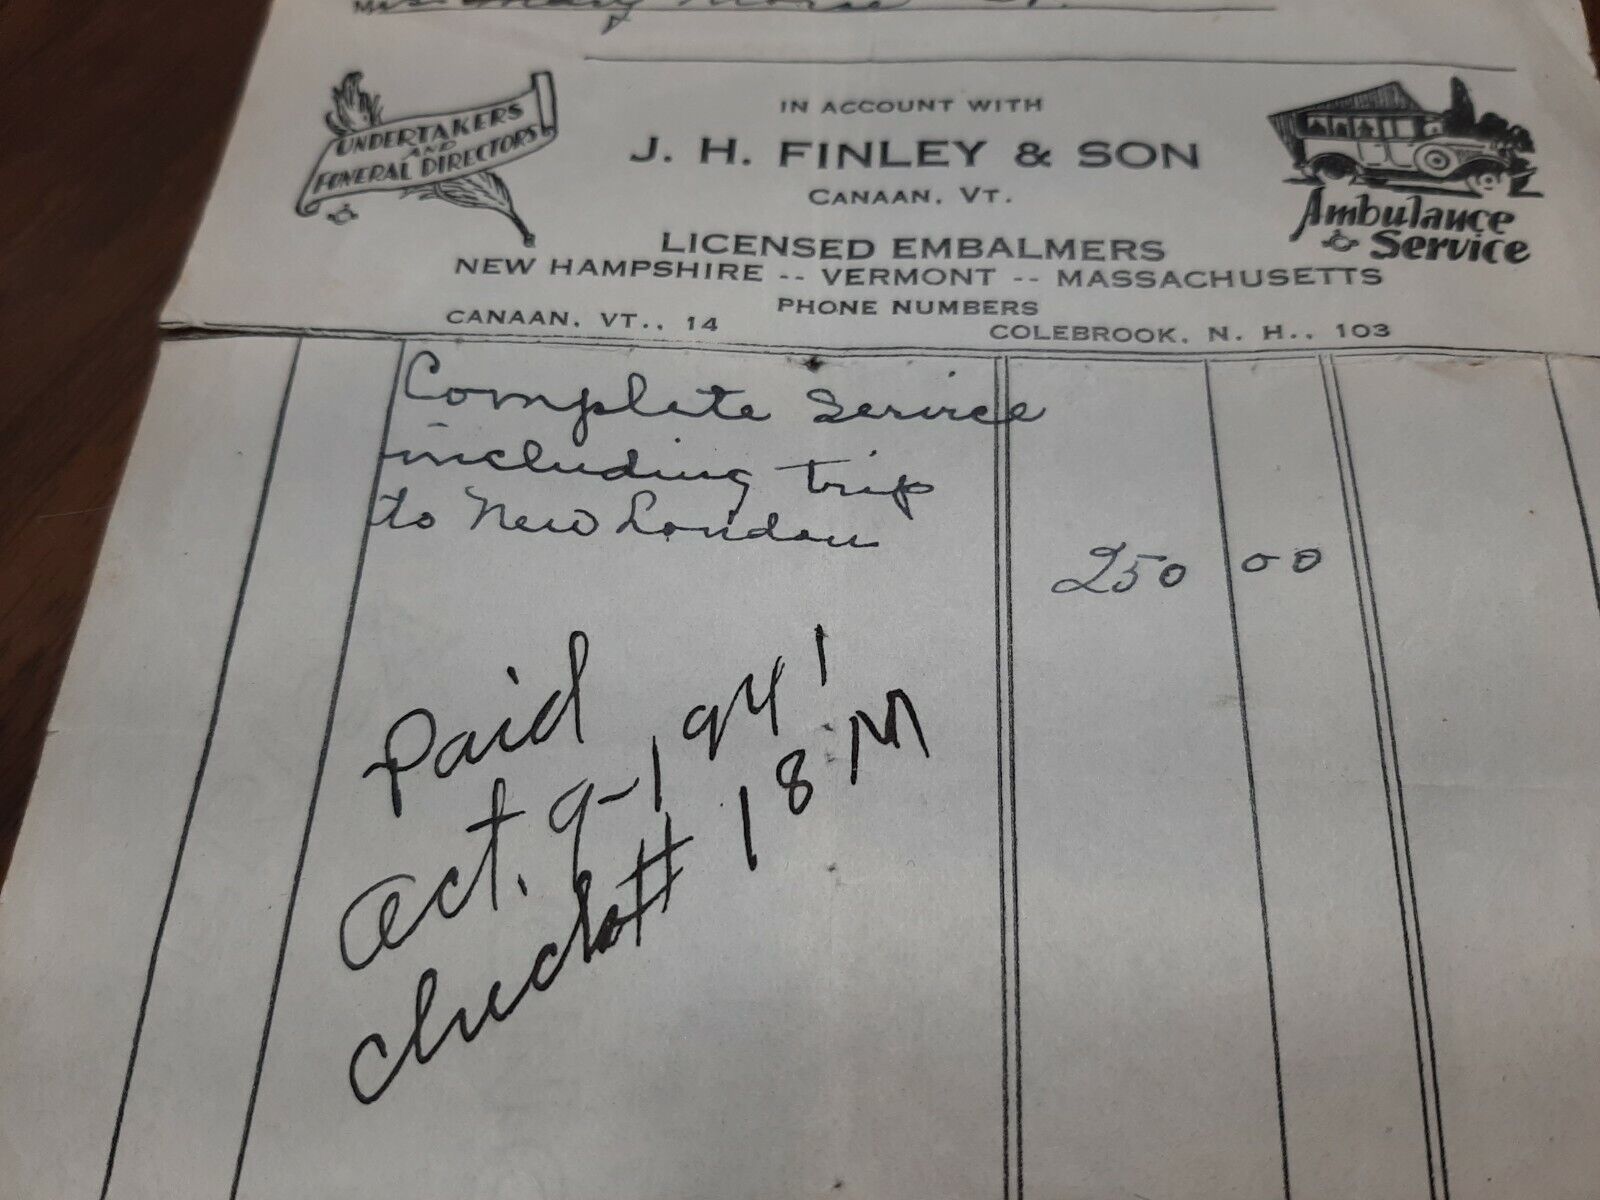 Mrs. Mary Morse
UNDERTAKERS
AND
FUNERAL DIRECTORS
IN ACCOUNT WITH
J. H. FINLEY & SON
CANAAN, VT.
LICENSED EMBALMERS
NEW HAMPSHIRE -- VERMONT -- MASSACHUSETTS
PHONE NUMBERS
CANAAN, VT., 14
COLEBROOK, N. H., 103
Ambulance
Service
Complete Service
including trip
to New London
250 00
Paid
Oct. 9-1941
check# 18M